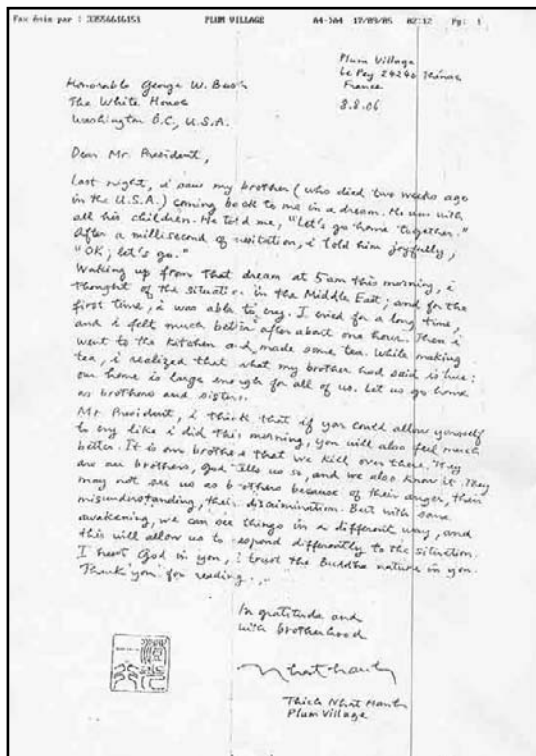 Fax émis par : 33556616151 PLUM VILLAGE A4->A4 17/09/05 02:12 Pg: 1
Plum Village
Le Pey 24240 Thénac
France
8.8.06
Honorable George W. Bush
The White House
Washington D.C., U.S.A.
Dear Mr. President,
Last night, i saw my brother (who died two weeks ago
in the U.S.A.) coming back to me in a dream. He was with
all his children. He told me, "Let's go home together."
After a millisecond of hesitation, i told him joyfully,
"OK, let's go."
Waking up from that dream at 5 am this morning, i
thought of the situation in the Middle East; and for the
first time, i was able to cry. I cried for a long time,
and i felt much better after about one hour. Then i
went to the kitchen and made some tea. While making
tea, i realized that what my brother had said is true:
our home is large enough for all of us. Let us go home
as brothers and sisters.
Mr. President, i think that if you could allow yourself
to cry like i did this morning, you will also feel much
better. It is our brothers that we kill over there. They
are our brothers, God tells us so, and we also know it. They
may not see us as brothers because of their anger, their
misunderstanding, their discrimination. But with some
awakening, we can see things in a different way, and
this will allow us to respond differently to the situation.
I trust God in you, i trust the Buddha nature in you.
Thank you for reading.
In gratitude and
with brotherhood
Nhat Hanh
Thich Nhat Hanh
Plum Village